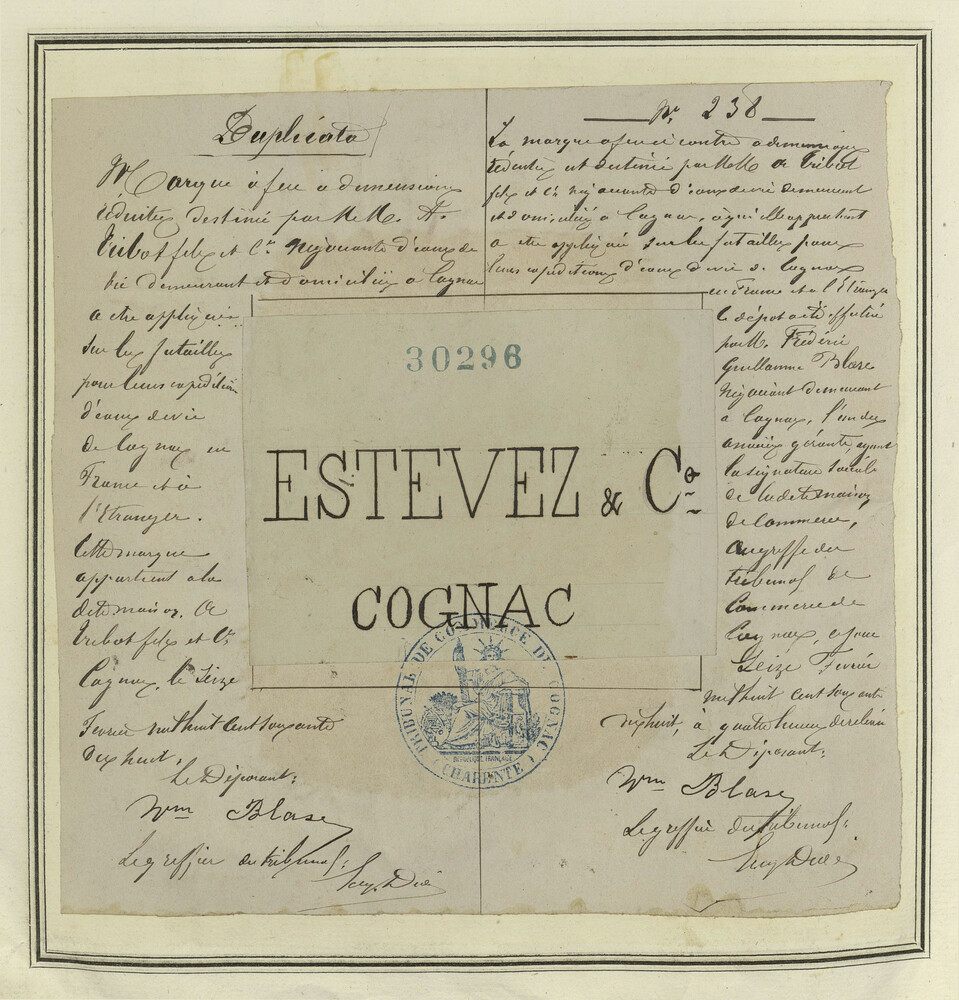 Duplicata
Marque à feu à dimensions
réduites destiné par M.M. A.
Tribot fils et Cie Négociants d'eaux de
vie demeurant et domiciliés à Cognac
a etre appliquée
sur les futailles
pour leurs expéditions
d'eaux de vie
de Cognac en
France et à
l'Etranger.
Cette marque
appartient a la
dite maison. A
Tribot fils et Cie
Cognac, le Seize
Fevrier mil huit cent soixante
dix huit.
Le Déposant:
Wm Blase
Le greffier du tribunal:
No 238
La marque a feu ci contre a dimensions
réduites et destiné par M.M. A Tribot
fils et Cie Négociants d'eaux de vie demeurant
et domiciliés à Cognac, à qui elle appartient
a etre appliquée sur les futailles pour
leurs expéditions d'eaux de vie de Cognac
en France et a l'Etranger
le dépot a été effectué
par M. Frédéric
Guillaume Blase
Négociant demeurant
à Cognac, l'un des
associés gérants, ayant
la signature sociale
de la dite maison
de Commerce,
au greffe du
tribunal de
Commerce de
Cognac, ce jour
Seize Fevrier
mil huit cent soixante
dix huit, à quatre heures de relevée
Le Déposant:
Wm Blase
Le greffier du tribunal:
30296
ESTEVEZ & Co
COGNAC
TRIBUNAL DE COMMERCE DE COGNAC
RÉPUBLIQUE FRANÇAISE
(CHARENTE)